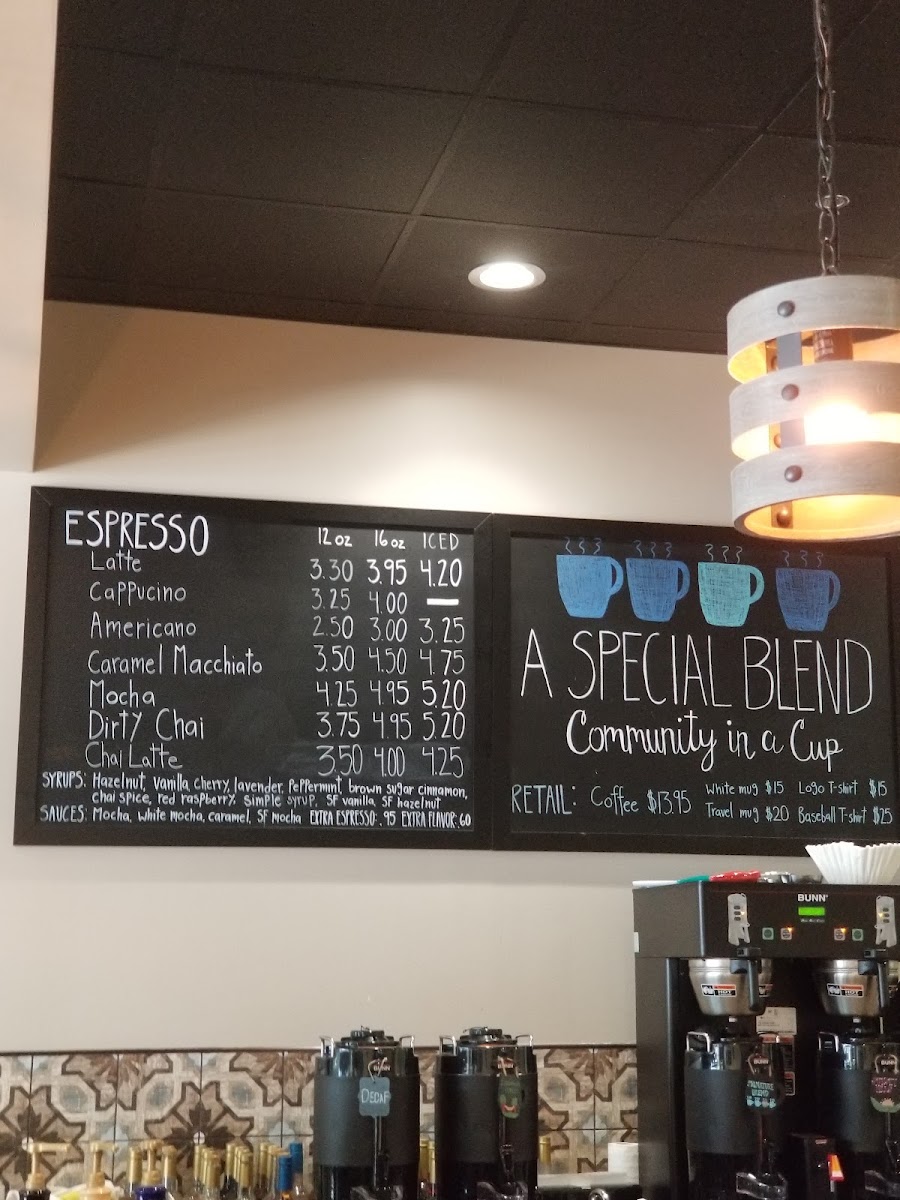 ESPRESSO 12 oz 16 oz ICED
Latte 3.30 3.95 4.20
Cappucino 3.25 4.00 —
Americano 2.50 3.00 3.25
Caramel Macchiato 3.50 4.50 4.75
Mocha 4.25 4.95 5.20
Dirty Chai 3.75 4.95 5.20
Chai Latte 3.50 4.00 4.25
SYRUPS: Hazelnut, vanilla, cherry, lavender, peppermint, brown sugar cinnamon,
chai spice, red raspberry, simple syrup, SF vanilla, SF hazelnut
SAUCES: Mocha, white mocha, caramel, SF mocha EXTRA ESPRESSO: .95 EXTRA FLAVOR: 60
A SPECIAL BLEND
Community in a Cup
RETAIL: Coffee $13.95
White mug $15 Logo T-shirt $15
Travel mug $20 Baseball T-shirt $25
BUNN
HOT
HOT
BUNN
BUNN
BUNN
BUNN
DECAF
SIGNATURE
BLEND